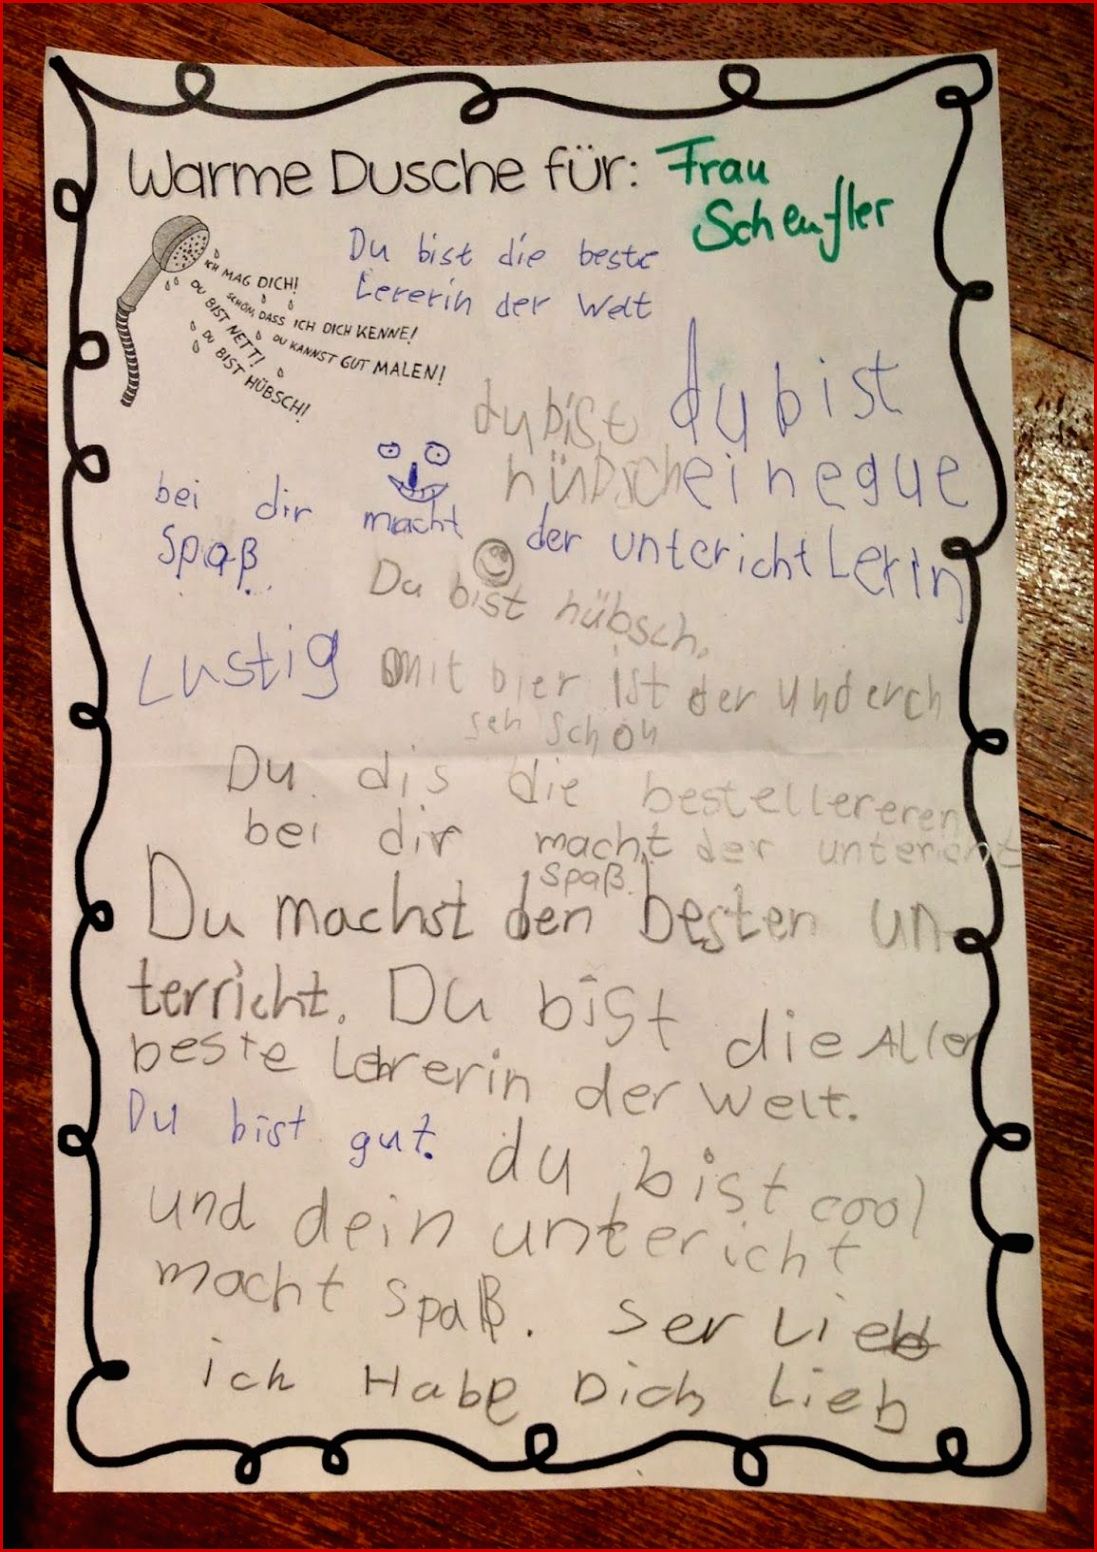 Warme Dusche für: Frau
Scheufler
ICH MAG DICH!
SCHÖN, DASS ICH DICH KENNE!
DU KANNST GUT MALEN!
DU BIST NETT!
DU BIST HÜBSCH!
Du bist die beste
Lererin der Welt
du bist
hübsch
du bist
eine gue
Lerin
bei dir macht der untericht
Spaß.
Du bist hübsch.
Lustig
mit bier ist der underch
seh schön
Du dis die bestellereren
bei dir macht der untericht
spaß.
Du machst den besten un-
terricht. Du bist die Aller
beste Lehrerin der Welt.
Du bist gut.
du bist cool
und dein untericht
macht spaß.
ser Lieb
ich Habe Dich Lieb